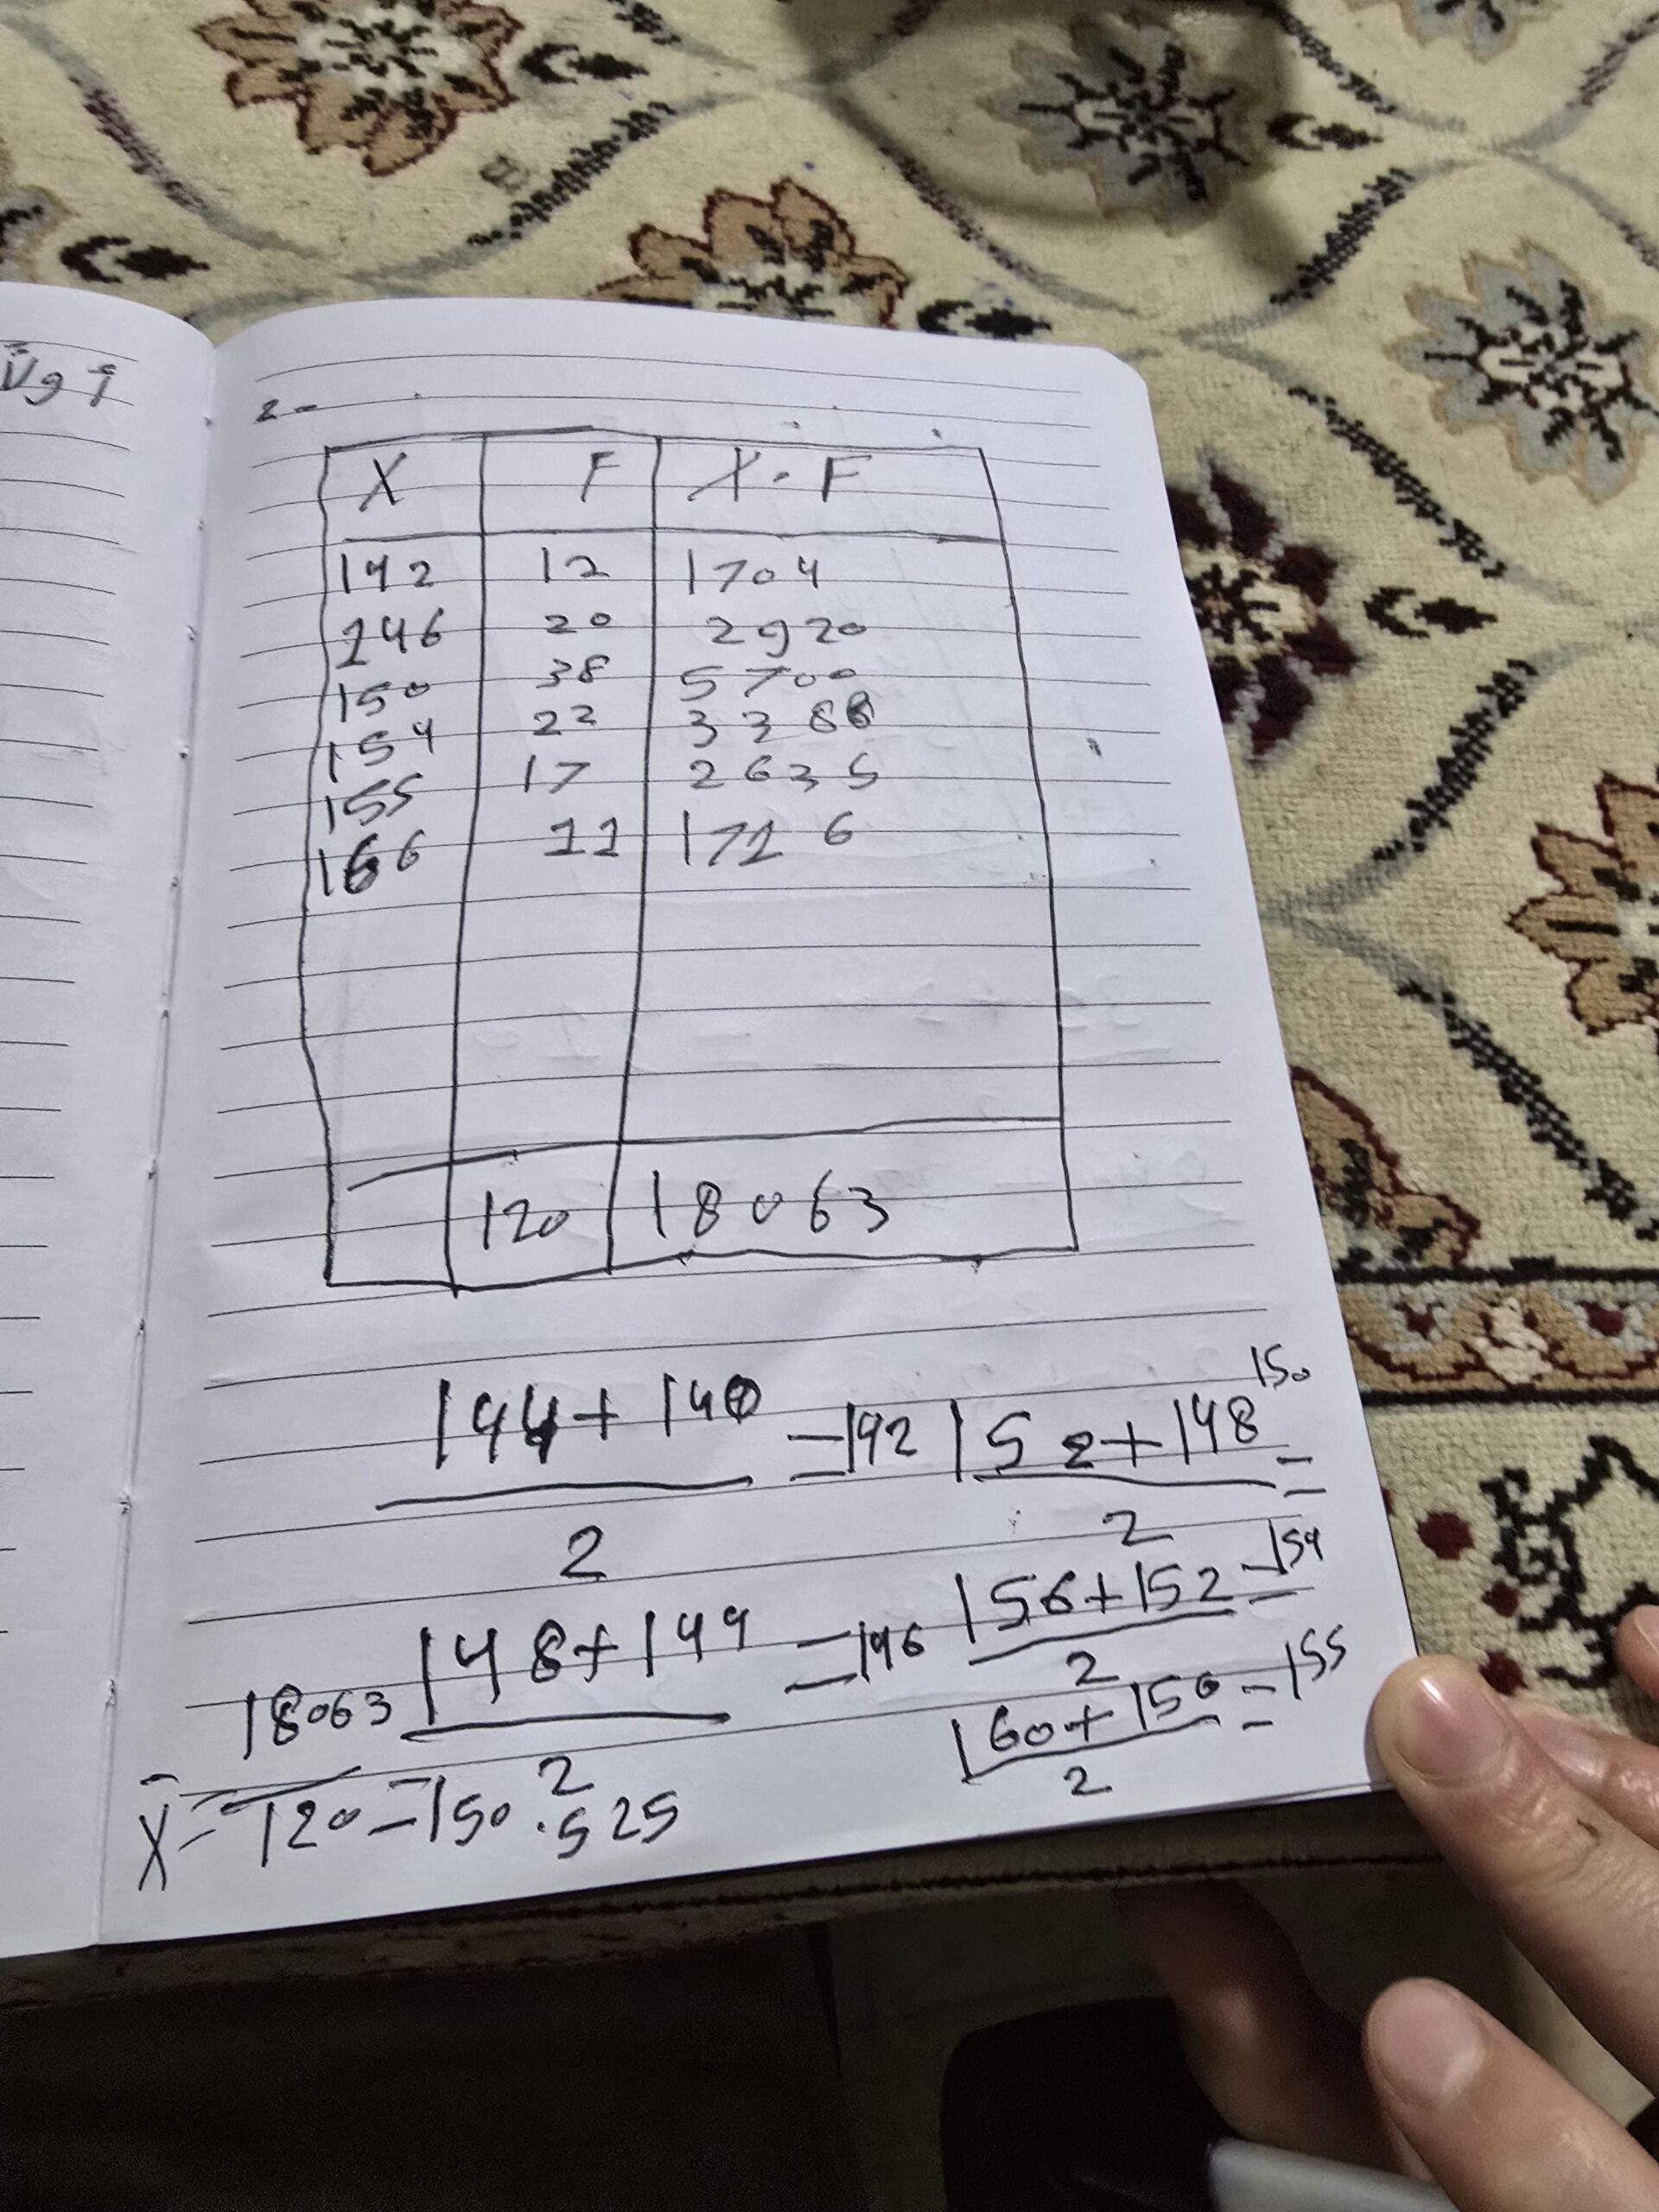 2-
X F X·F
142 12 1704
146 20 2920
150 38 5700
154 22 3388
155 17 2635
166 11 1716
120 18063
144+140 / 2 =142
152+148 / 2 = 150
148+144 / 2 =146
156+152 / 2 =154
160+150 / 2 =155
X̄ = 18063 / 120 =150.525